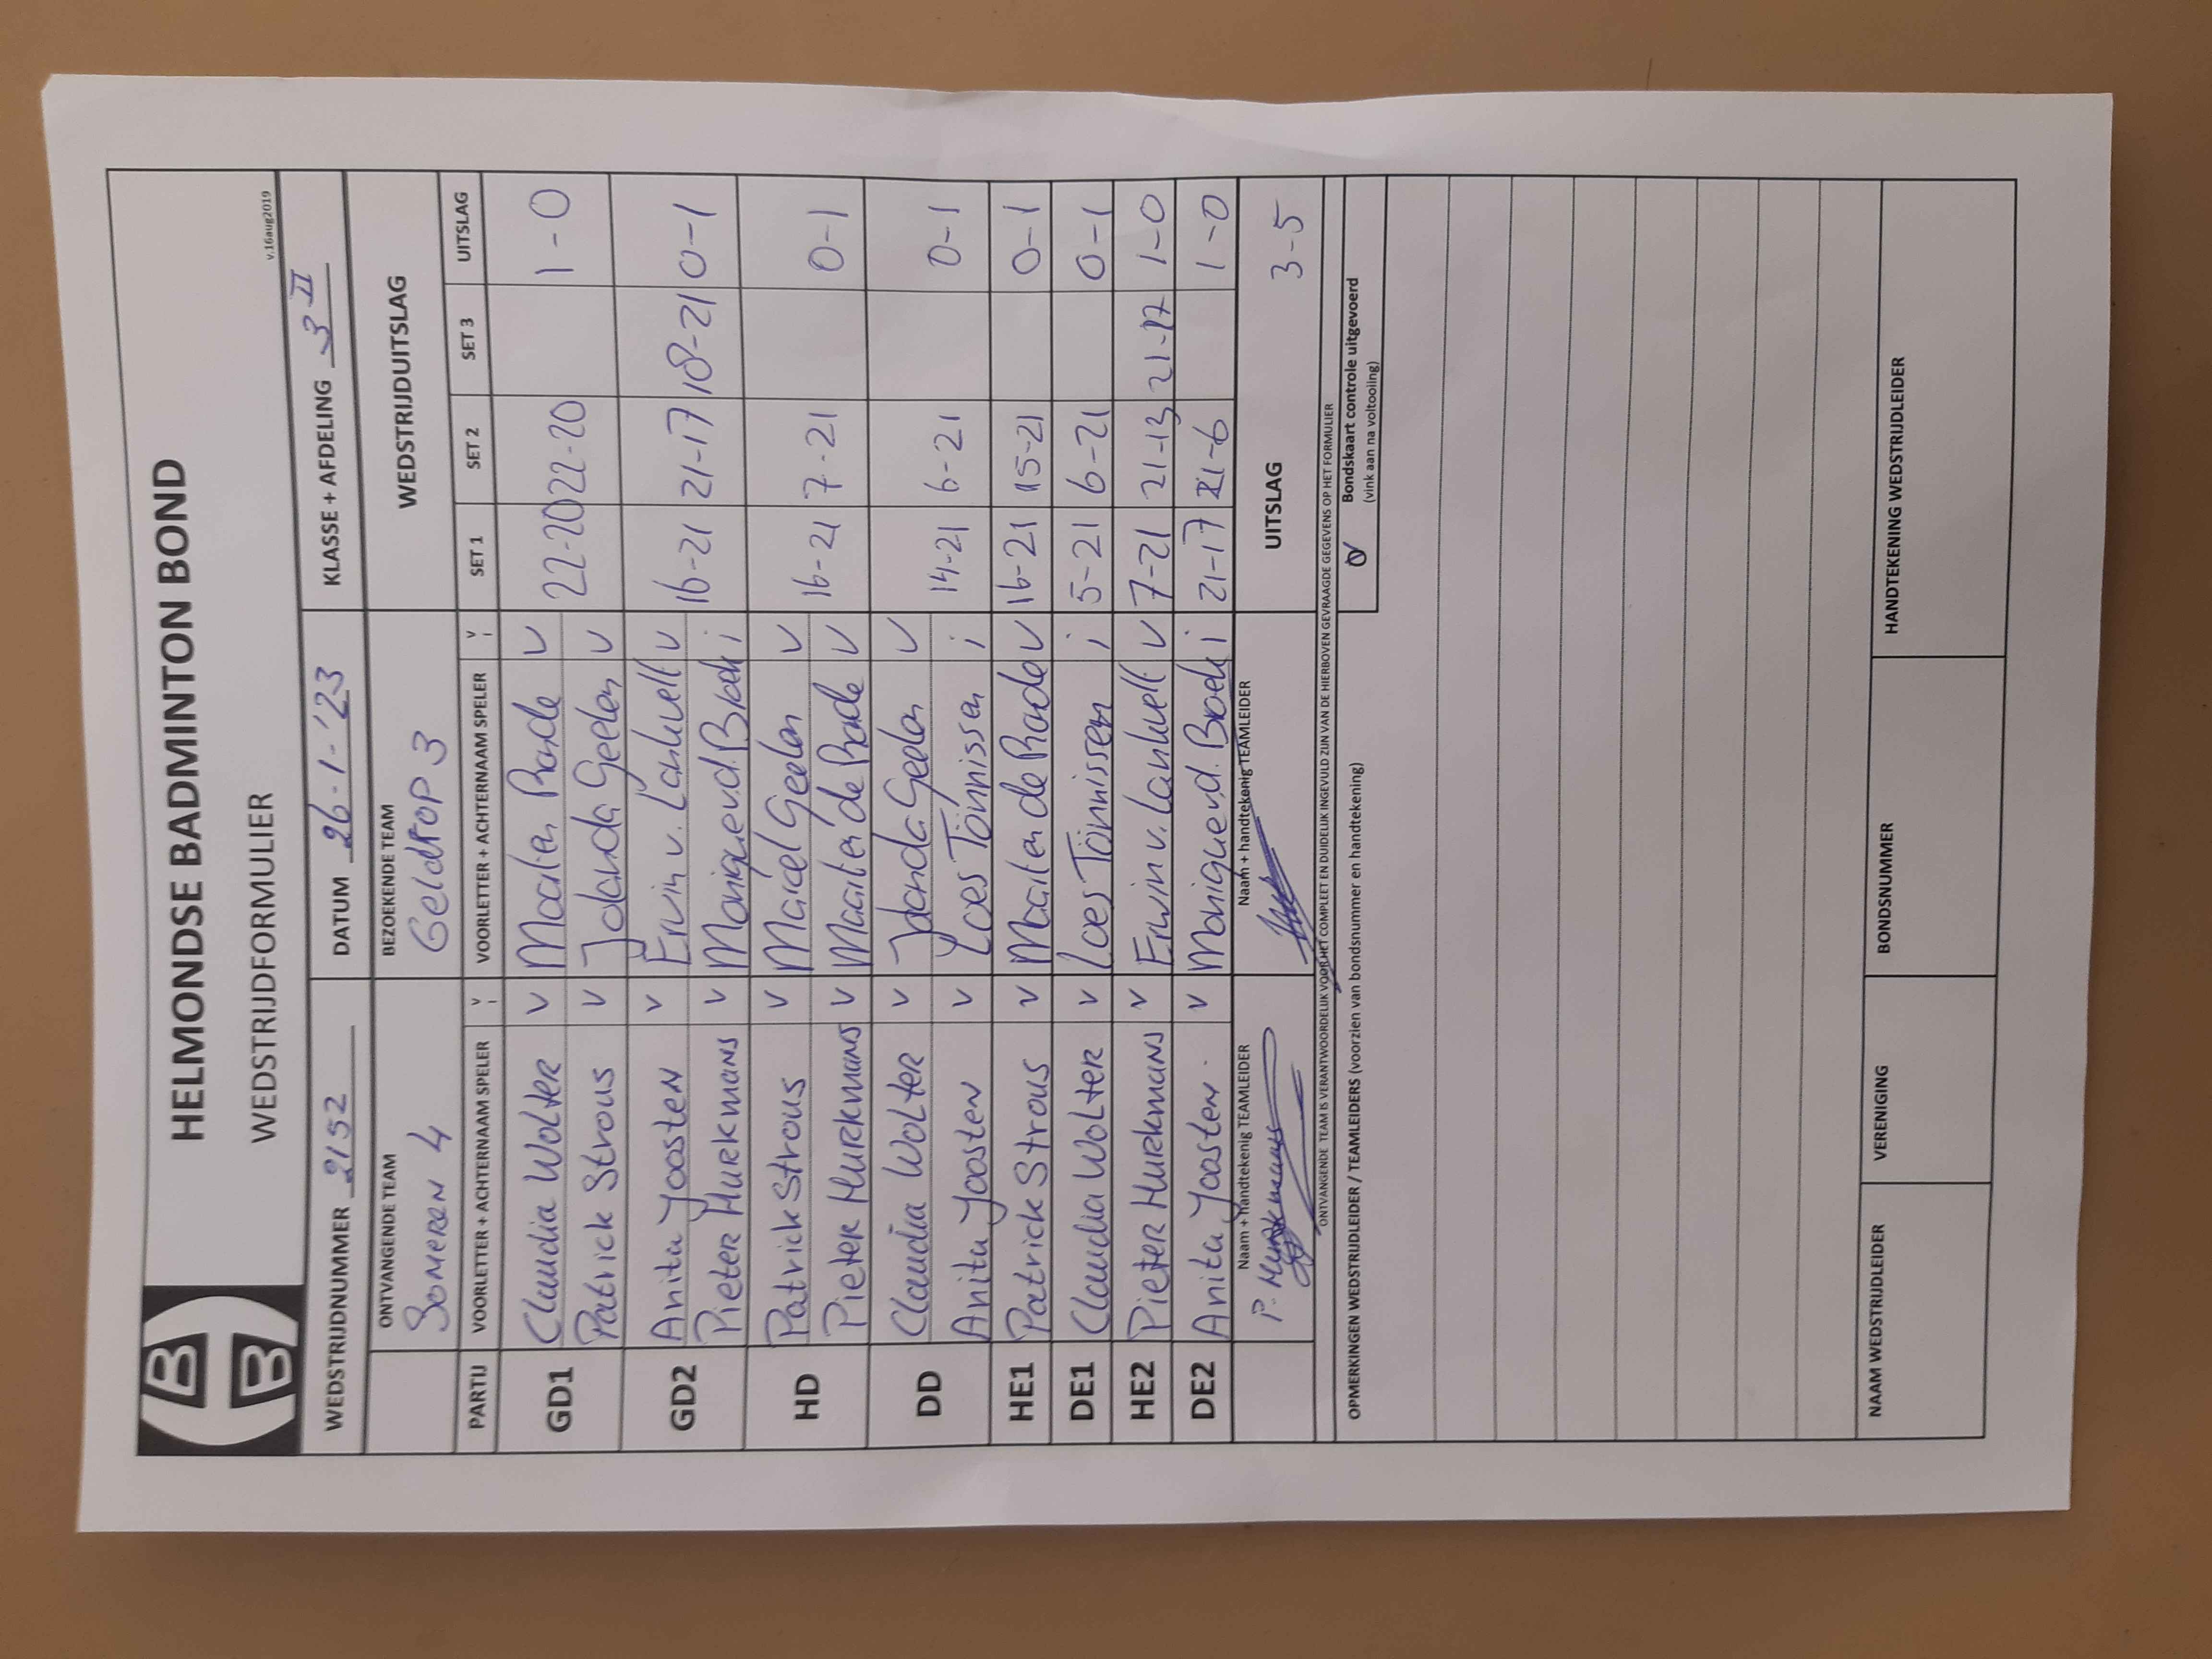 HELMONDSE BADMINTON BOND
WEDSTRIJDFORMULIER
v.16aug2019
WEDSTRIJDNUMMER 2152 DATUM 26-1-'23 KLASSE + AFDELING 3 II
ONTVANGENDE TEAM BEZOEKENDE TEAM WEDSTRIJDUITSLAG
SOMEREN 4 Geldrop 3
PARTIJ VOORLETTER + ACHTERNAAM SPELER V I VOORLETTER + ACHTERNAAM SPELER V I SET 1 SET 2 SET 3 UITSLAG
GD1 Claudia Wolter v Maarten Rande v 22-20 22-20 1-0
Patrick Strous v Jolanda Geelen v
GD2 Anita Joosten v Erwin v. Lankvelt v 16-21 21-17 18-21 0-1
Pieter Hurkmans v Monique v.d. Broek i
HD Patrick Strous v Marcel Geelen v 16-21 7-21 0-1
Pieter Hurkmans v Maarten de Rade v
DD Claudia Wolter v Jolanda Geelen v 14-21 6-21 0-1
Anita Joosten v Loes Tönnissen i
HE1 Patrick Strous v Maarten de Rade v 16-21 15-21 0-1
DE1 Claudia Wolter v Loes Tönnissen i 5-21 6-21 0-1
HE2 Pieter Hurkmans v Erwin v. Lankvelt v 7-21 21-13 21-17 1-0
DE2 Anita Joosten. v Monique v.d. Broek i 21-17 21-6 1-0
Naam + handtekenig TEAMLEIDER Naam + handtekenig TEAMLEIDER UITSLAG 3-5
P. Hurkmans
ONTVANGENDE TEAM IS VERANTWOORDELIJK VOOR HET COMPLEET EN DUIDELIJK INGEVULD ZIJN VAN DE HIERBOVEN GEVRAAGDE GEGEVENS OP HET FORMULIER
OPMERKINGEN WEDSTRIJDLEIDER / TEAMLEIDERS (voorzien van bondsnummer en handtekening)
Bondskaart controle uitgevoerd
(vink aan na voltooiing)
NAAM WEDSTRIJDLEIDER VERENIGING BONDSNUMMER HANDTEKENING WEDSTRIJDLEIDER